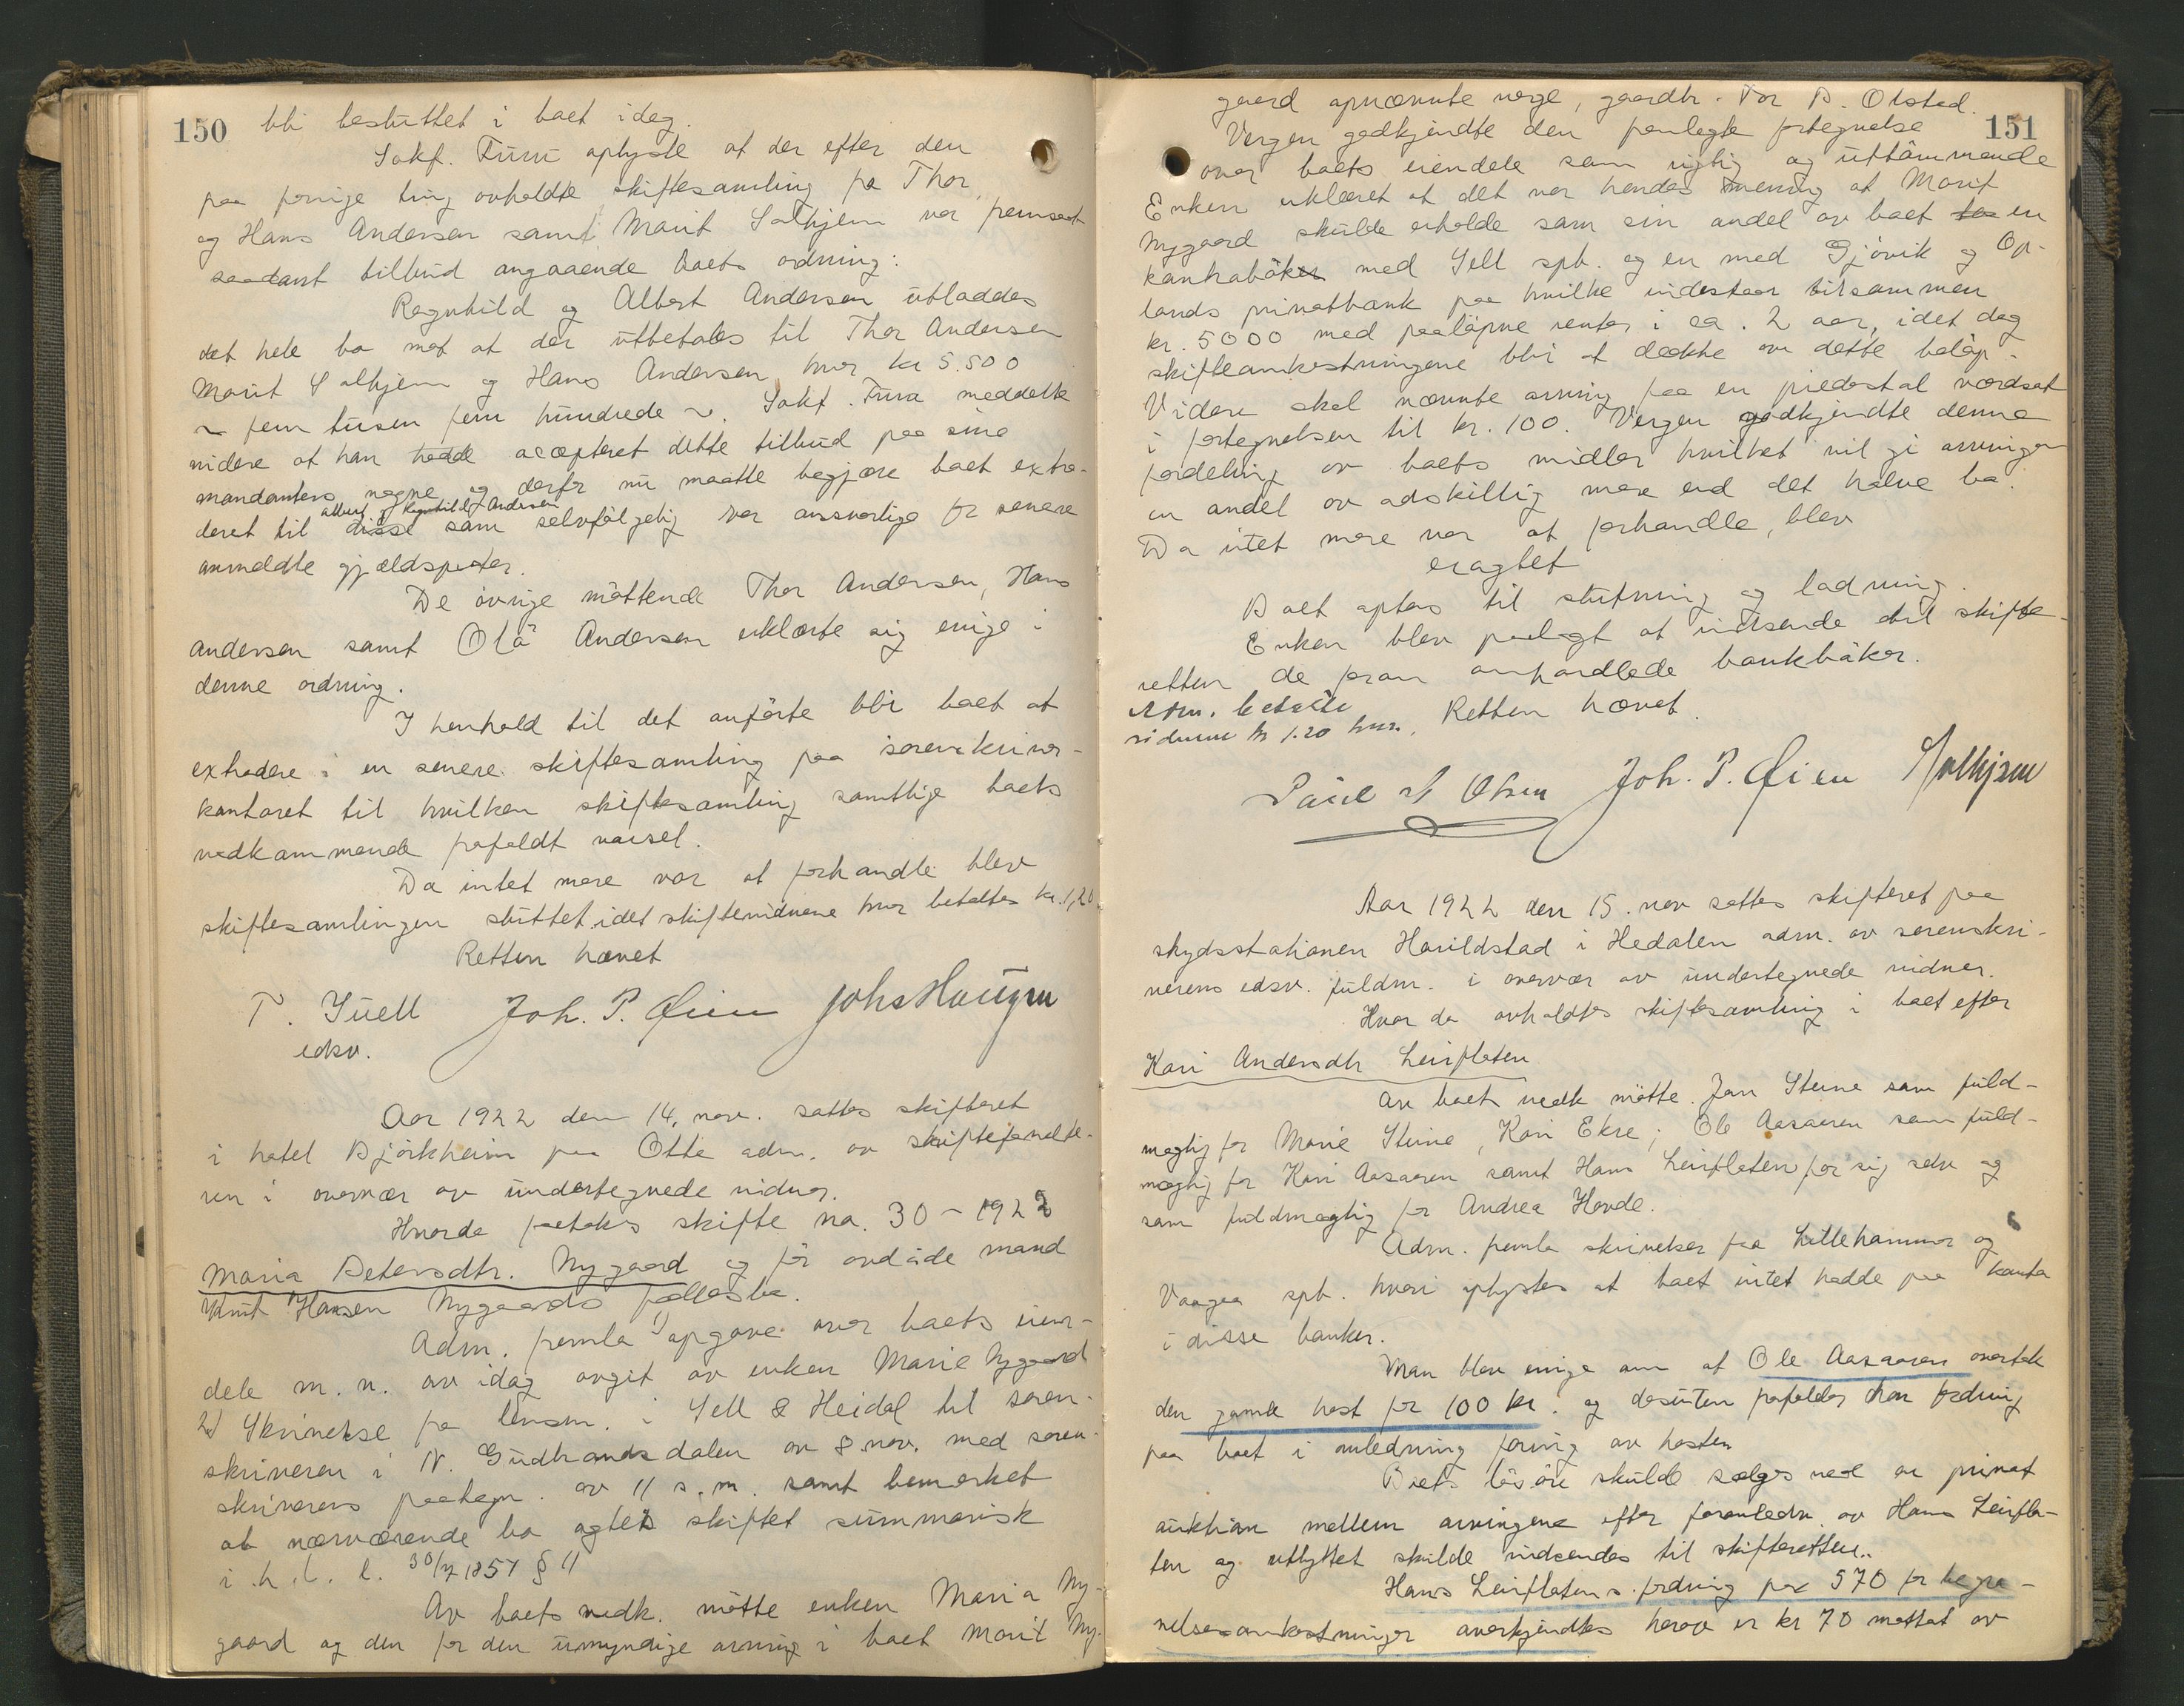 150
bli besluttet i boet idag.
Sakf. Furu oplyste at der efter den
paa forrige ting avholdte skiftesamling fra Thor
og Hans Andersen samt Marit Solhjem var fremsat
saadant tilbud angaaende boets ordning:
Ragnhild og Albert Andersen utloddes
det hele bo mot at der utbetales til Thor Andersen
Marit Solhjem og Hans Andersen hver kr 5.500
~ fem tusen fem hundrede ~. Sakf. Furu meddelte
videre at han hadde acceptert dette tilbud paa sine
mandanters vegne og derfor nu maatte begjære boet extra-
Albert og Ragnhild Andersen
deret til disse som selvfølgelig var ansvarlige for senere
anmeldte gjældsposter.
De øvrige møttende Thor Andersen, Hans
Andersen samt Ola Andersen erklærte sig enige i
denne ordning.
I henhold til det anførte blir boet at
extradere i en senere skiftesamling paa sorenskriver-
kontoret til hvilken skiftesamling samtlige boets
vedkommende forkyndt varsel.
Da intet mere var at forhandle blev
skiftesamlingen sluttet idet skiftevidnene hver betaltes kr. 1,20.
Retten hævet
T. Juell Joh. P. Øien Johs Haugen
edsv.
Aar 1922 den 14. nov. sattes skifteret
i hotel Bjørkheim paa Otta adm. av skifteforvalte-
ren i overvær av undertegnede vidner.
Hvorda foretokes skifte no. 30 - 1922
Maria Petersdtr. Nygaard og før avdøde mand
Knut Hansen Nygaards fællesbo.
Adm. fremla 1) opgave over boets eien-
dele m. v. av idag avgit av enken Marie Nygaard
2) Skrivelse fra lensm. i Sell & Heidal til soren-
skriveren i N. Gudbrandsdalen av 8. nov. med soren-
skriverens paategn. av 11 s. m. samt bemerket
at nærværende bo agtes skiftet summarisk
i. h. t. l. 30/7 1851 § 11
Av boets vedk. møtte enken Maria Ny-
gaard og den for den umyndige arving i boet Marit Ny-
151
gaard opnævnte verge, gaardbr. Tor P. Olstad.
Vergen godkjendte den fremlagte fortegnelse
over boets eiendele som rigtig og uttømmende
Enken erklæret at det var hendes mening at Marit
Nygaard skulde erholde som sin andel av boet to en
kontrabøker med Sell spb. og en med Gjøvik og Op-
lands privatbank paa hvilke indestaar tilsammen
kr. 5000 med paaløpne renter i ca. 2 aar, idet dog
skifteomkostningene blir at dække av dette beløp.
Videre skal nævnte arving faa en piedestal værdsat
i fortegnelsen til kr. 100. Vergen godkjendte denne
fordeling av boets midler hvilket vil gi arvingen
en andel av adskillig mere end det halve bo.
Da intet mere var at forhandle, blev
eragtet
Boet optas til slutning og lodning.
Enken blev paalagt at indsende til skifte-
retten de foran omhandlede bankbøker.
Adm. betalte
vidnene kr 1.20 hver. Retten hævet.
Paul A Olsen Joh. P. Øien Solhjem
Aar 1922 den 15. nov sattes skifteret paa
skydsstationen Harildstad i Hedalen adm. av sorenskri-
verens edsv. fuldm. i overvær av undertegnede vidner.
Hvor da avholdtes skiftesamling i boet efter
Kari Andersdtr Leirflaten
Av boets vedk møtte Jan Steine som fuld-
mægtig for Marie Steine, Kari Ekre; Ole Aasaaren som fuld-
mægtig for Kari Aasaaren samt Hans Leirflaten for sig selv og
som fuldmægtig for Andrea Hovde.
Adm. fremla skrivelser fra Lillehammer og
Vaagaa spb. hvori oplystes at boet intet hadde paa konto
i disse banker.
Man blev enige om at Ole Aasaaren overtok
den gamle hest for 100 kr. og desuten frafalder han fordring
paa boet i anledning foring av hesten
Boets løsøre skulde sælges ved en privat
auktion mellem arvingene efter foranledn. av Hans Leirfla-
ten og utbyttet skulde indsendes til skifteretten..
Hans Leirflatens fordring paa 570 for begra-
velsesomkostninger anerkjendtes herav er kr 70 mottat av